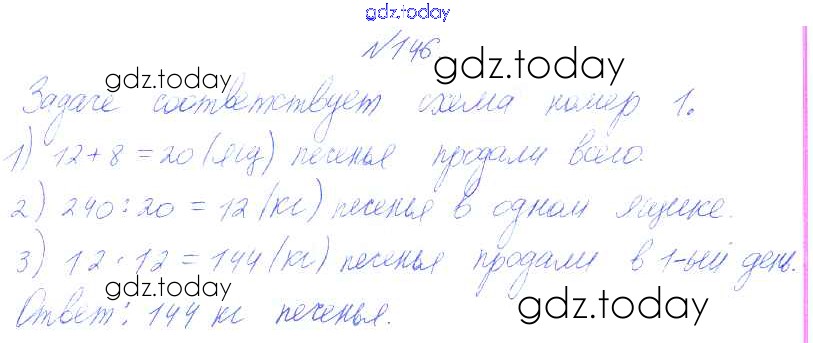 gdz.today
№146
gdz.today
gdz.today
Задаче соответствует схема номер 1.
1) 12+8=20 (ящ) печенья продали всего.
2) 240:20=12 (кг) печенья в одном ящике.
3) 12·12=144 (кг) печенья продали в 1-ый день.
gdz.today
gdz.today
Ответ: 144 кг печенья.